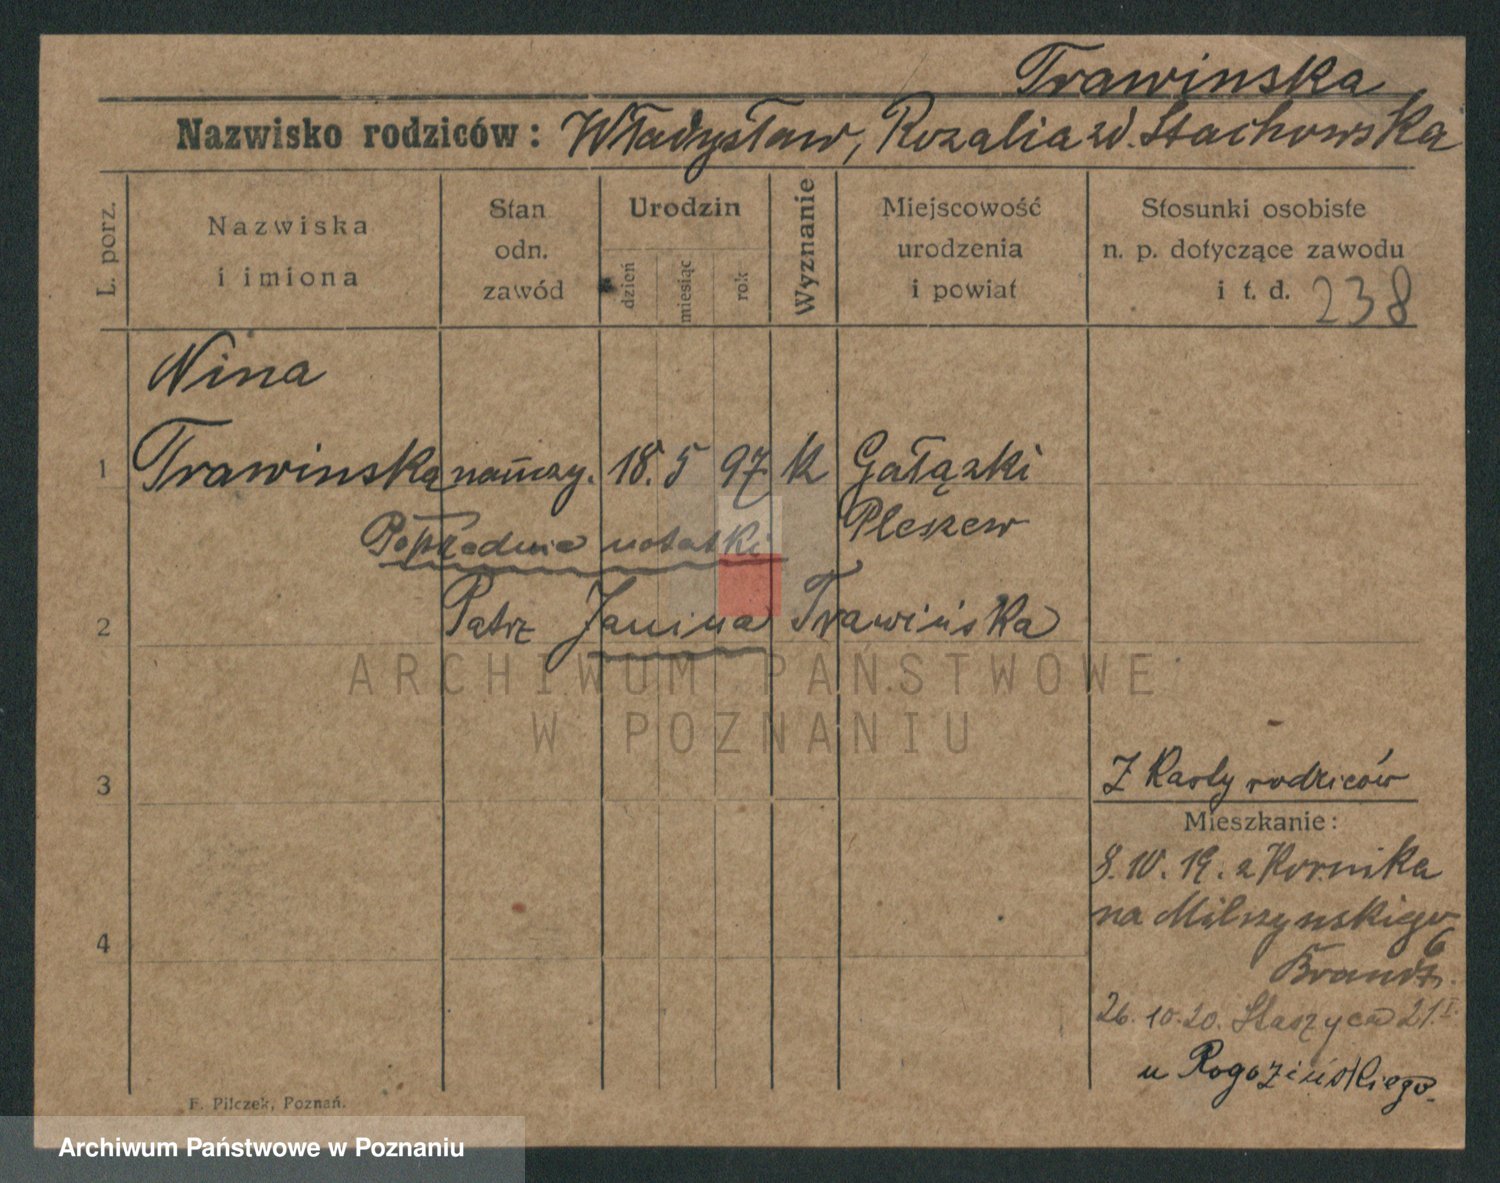 Trawinska
Nazwisko rodziców: Władysław, Rozalia zd. Stachowska
L. porz.
Nazwiska
i imiona
Stan
odn.
zawód
Urodzin
dzień
miesiąc
rok
Wyznanie
Miejscowość
urodzenia
i powiat
Stosunki osobiste
n. p. dotyczące zawodu
i t. d. 238
Nina
1 Trawinska nauczy. 18. 5 97 k Gałązki
Pleszew
Poprzednie notatki
2 Patrz Janina Trawińska
ARCHIWUM PAŃSTWOWE
W POZNANIU
3
Z Karty rodziców
Mieszkanie:
8. 10. 19. z Kornika
na Milszynskiego
6
4
26. 10. 20. Staszyca 21. I.
u Rogozińskiego.
F. Pilczek, Poznań.
Archiwum Państwowe w Poznaniu